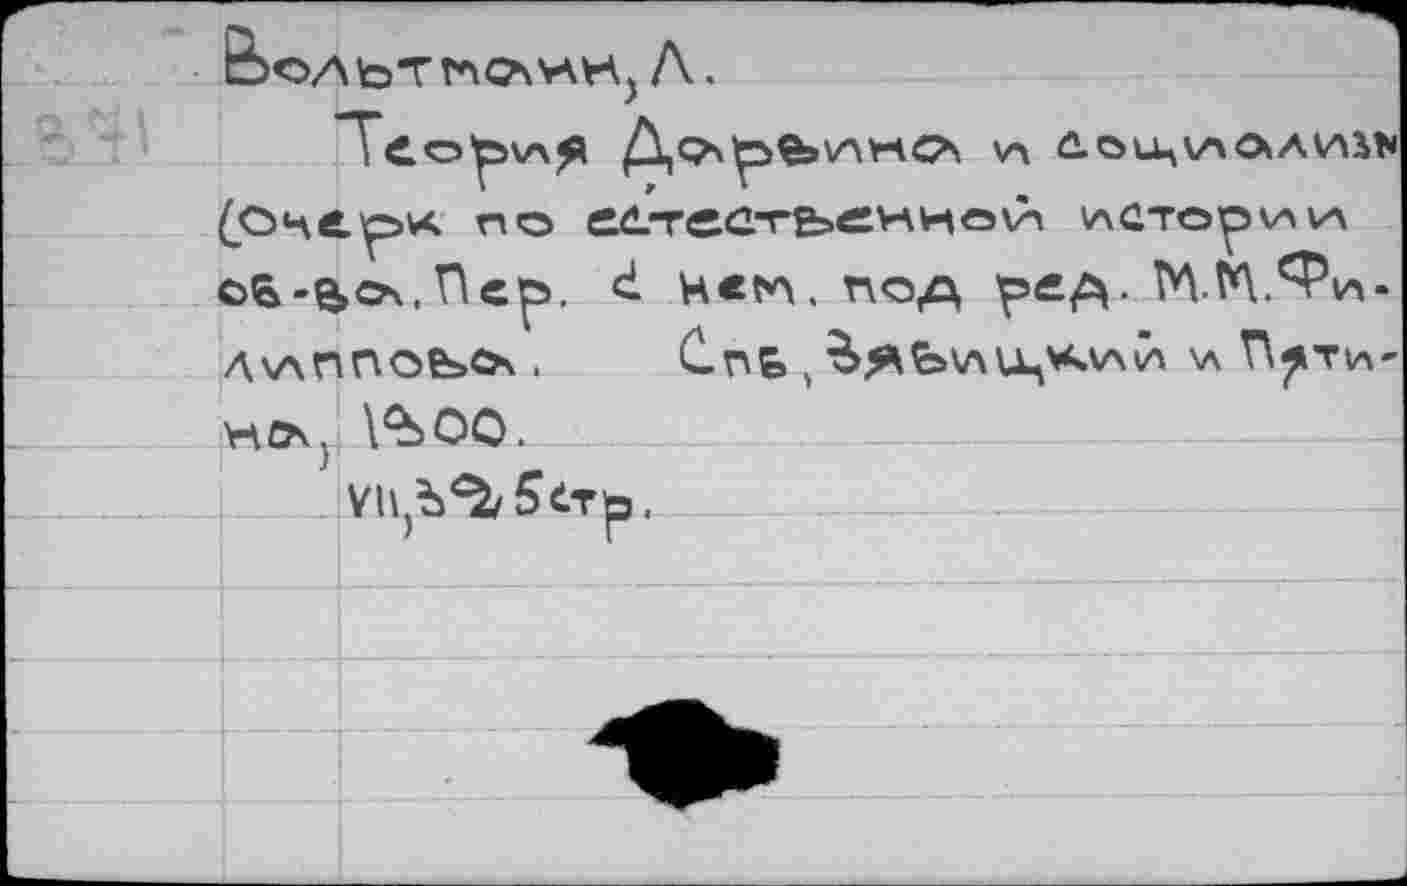 Вольтманн, Л.
Теория Дарвина и социализм
(Очерк по естественной истории
об-ва. Пер. с нем. под ред. М.М.Фи-
липпова. Спб, Звяицкий и Пяти-
на, 1900.
VII, 392 стр.